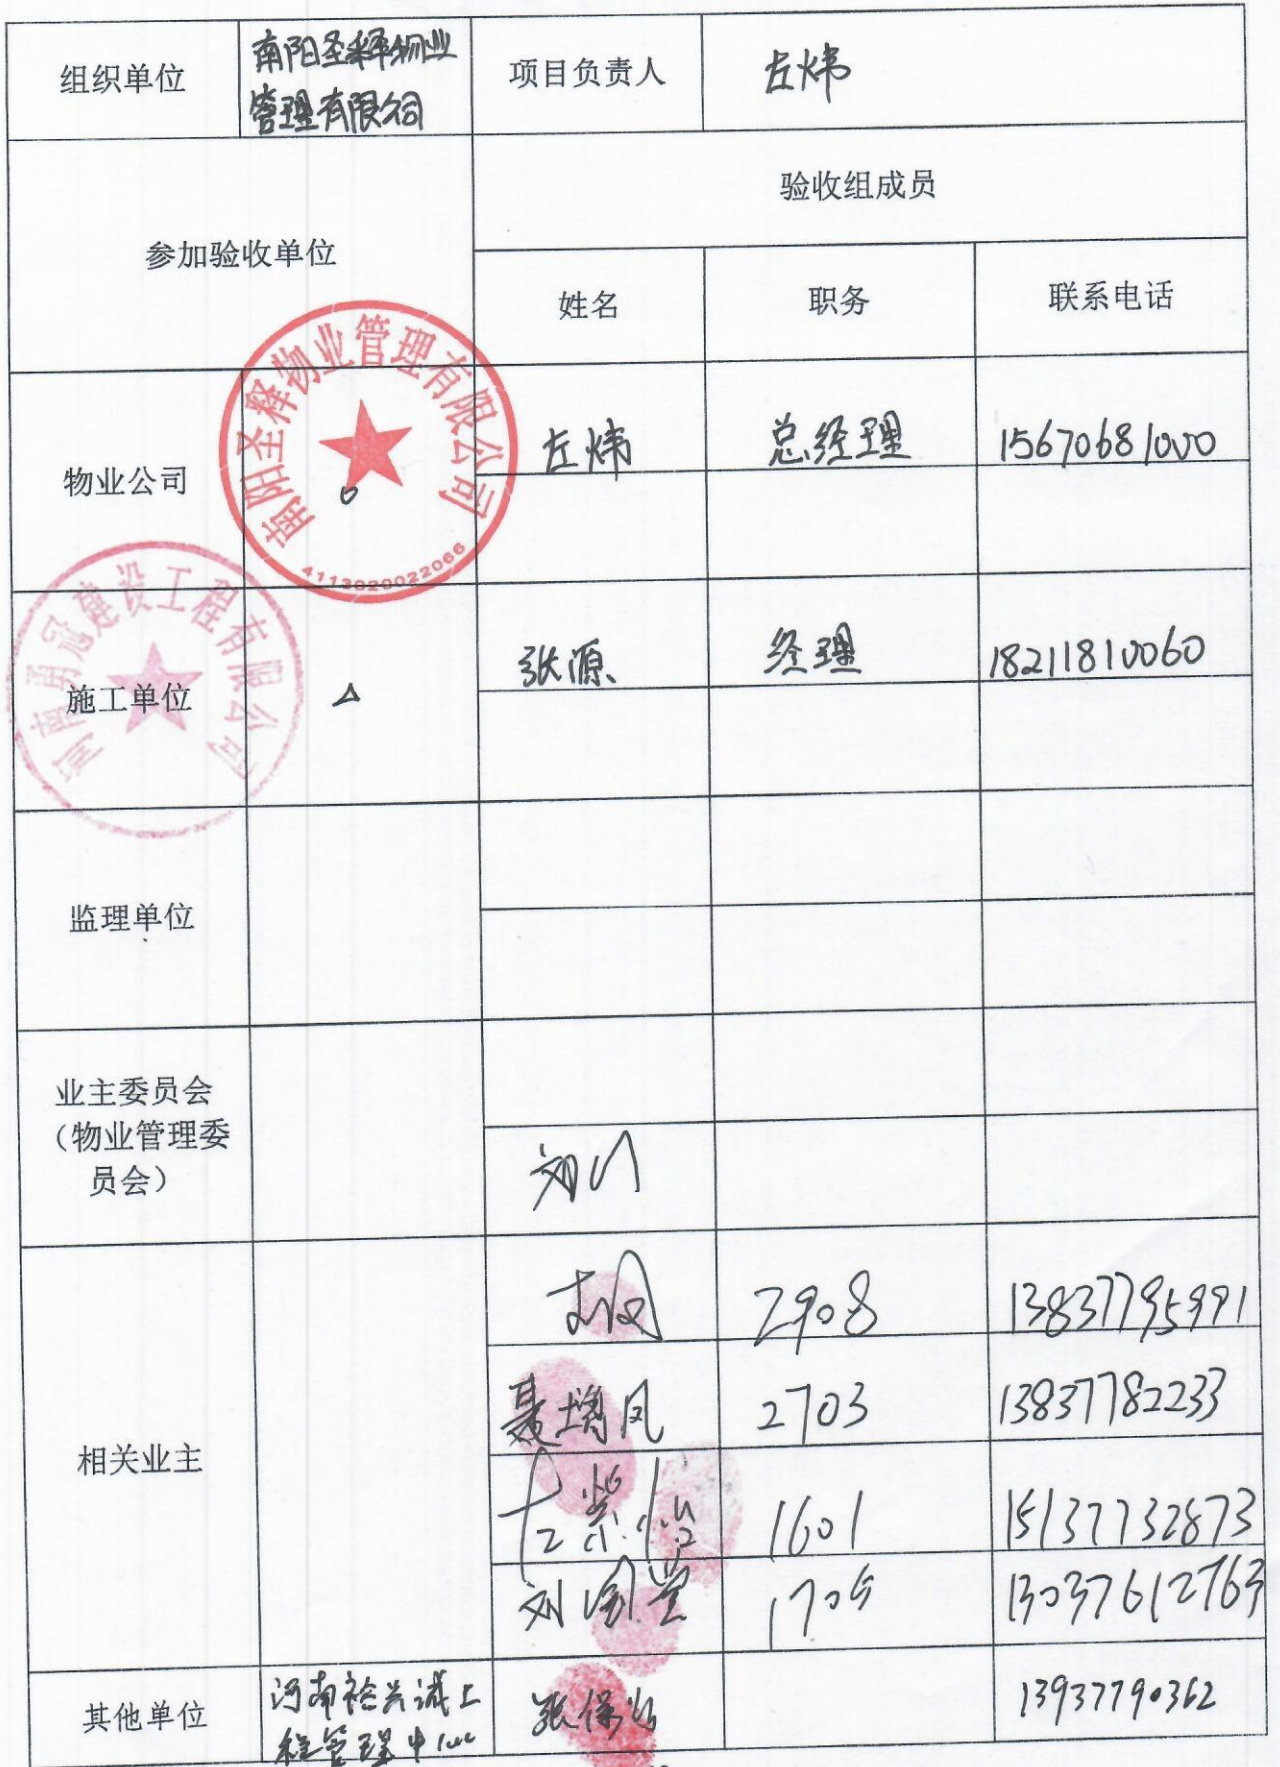 组织单位
南阳圣释物业
管理有限公司
项目负责人
左炜
参加验收单位
验收组成员
姓名
职务
联系电话
物业公司
南阳圣释物业管理有限公司
4113020022066
左炜
总经理
15670681000
施工单位
河南甬冠建设工程有限公司
张源
经理
18211810060
监理单位
业主委员会
（物业管理委
员会）
刘
相关业主
2908
13837795991
聂增凤
2703
13837782233
1601
15137732873
刘
1705
13037612763
其他单位
河南裕兴诚工
程管理中心
张保
13937790362